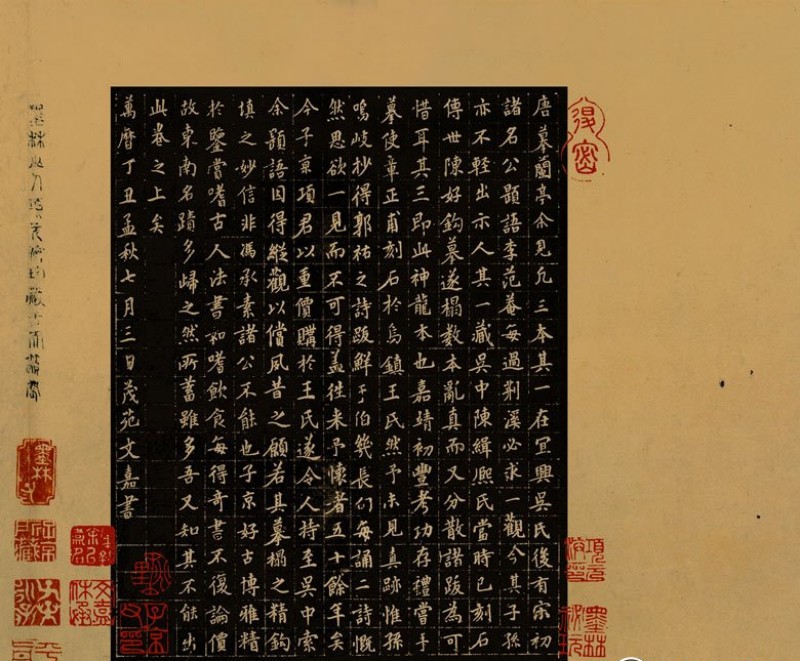 唐摹蘭亭余見凡三本其一在宜興吳氏後有宋初
諸名公題語李范菴每過荆溪必求一觀今其子孫
亦不輕出示人其一藏吳中陳緝熈氏當時已刻石
傳世陳好鈎摹遂搨數本亂真而又分散諸跋為可
惜耳其三即此神龍本也嘉靖初豐考功存禮嘗手
摹使章正甫刻石於烏鎮王氏然予未見真跡惟孫
鳴岐抄得郭祐之詩跋鮮于伯幾長句每誦二詩慨
然思欲一見而不可得葢徃来予懷者五十餘年矣
今子京項君以重價購於王氏遂令人持至吳中索
余題語因得縱觀以償夙昔之願若其摹搨之精鈎
填之妙信非馮承素諸公不能也子京好古博雅精
於鑒賞嗜古人法書如嗜飲食每得奇書不復論價
故東南名蹟多歸之然所蓄雖多吾又知其不能出
此卷之上矣
萬曆丁丑孟秋七月三日茂苑文嘉書
墨林
子京